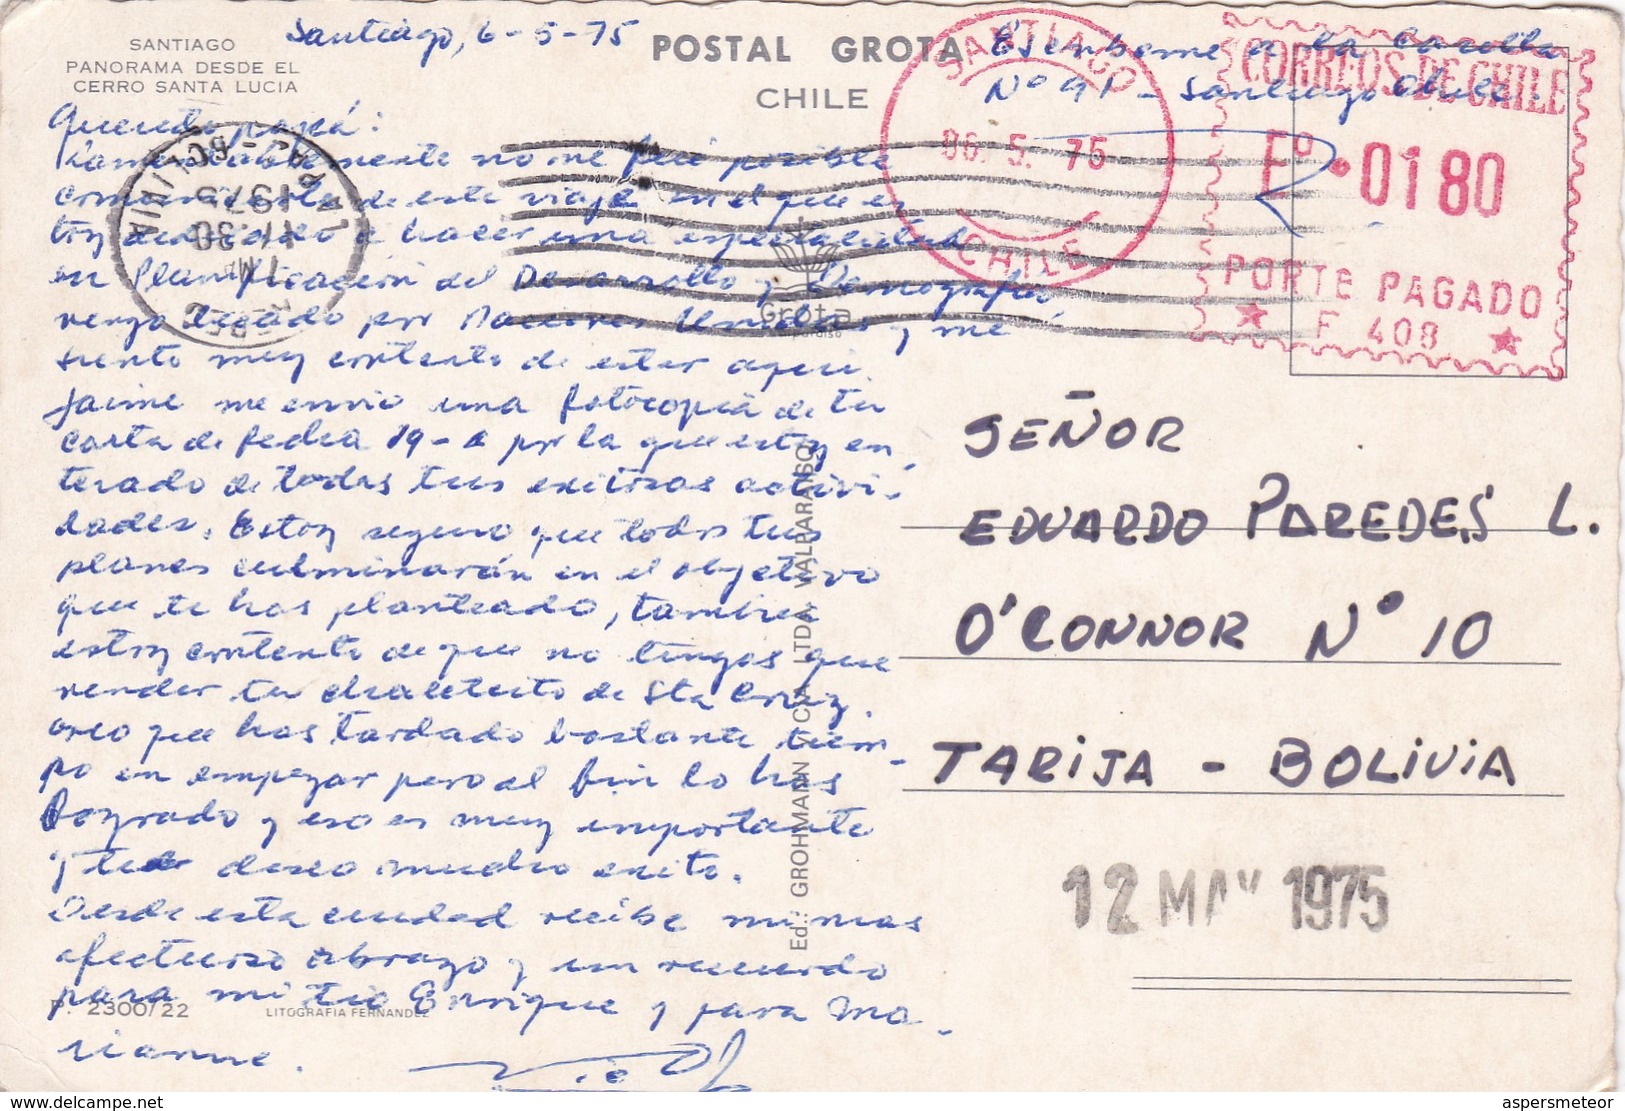 SANTIAGO
PANORAMA DESDE EL
CERRO SANTA LUCIA
POSTAL GROTA
CHILE
Santiago, 6-5-75
Escribeme a la Casilla
Nº 91 - Santiago Chile.
SANTIAGO
06. 5. 75
CHILE
CORREOS DE CHILE
Eº .0180
PORTE PAGADO
F 408
BOLIVIA
1975
Grota
Querido papá:
Lamentablemente no me fué posible
de este viaje en el que es
toy a hacer una especialidad
en Planificación del Desarrollo y Demografía
vengo becado por Naciones Unidas y me
siento muy contento de estar aquí.
Jaime me envio una fotocopia de tu
carta de fecha 19- por la que estoy en
terado de todas tus exitosas activi-
dades. Estoy seguro que todos tus
planes culminarán en el objetivo
que te has planteado, también
estoy contento de que no tengas que
vender tu de Sta Cruz,
creo que has tardado bastante tiem-
po en empezar pero al fin lo has
logrado y eso es muy importante
y te deseo mucho exito.
Desde esta ciudad recibe mi mas
afectuoso abrazo y un recuerdo
para mi tio Enrique y para Ma-
rianne.
P. 2300/22
LITOGRAFIA FERNANDEZ
Ed.: GROHMANN Y CIA. LTDA. VALPARAISO
SEÑOR
EDUARDO PAREDES L.
O'CONNOR Nº 10
TARIJA - BOLIVIA
12 MAY 1975
aspersmeteor